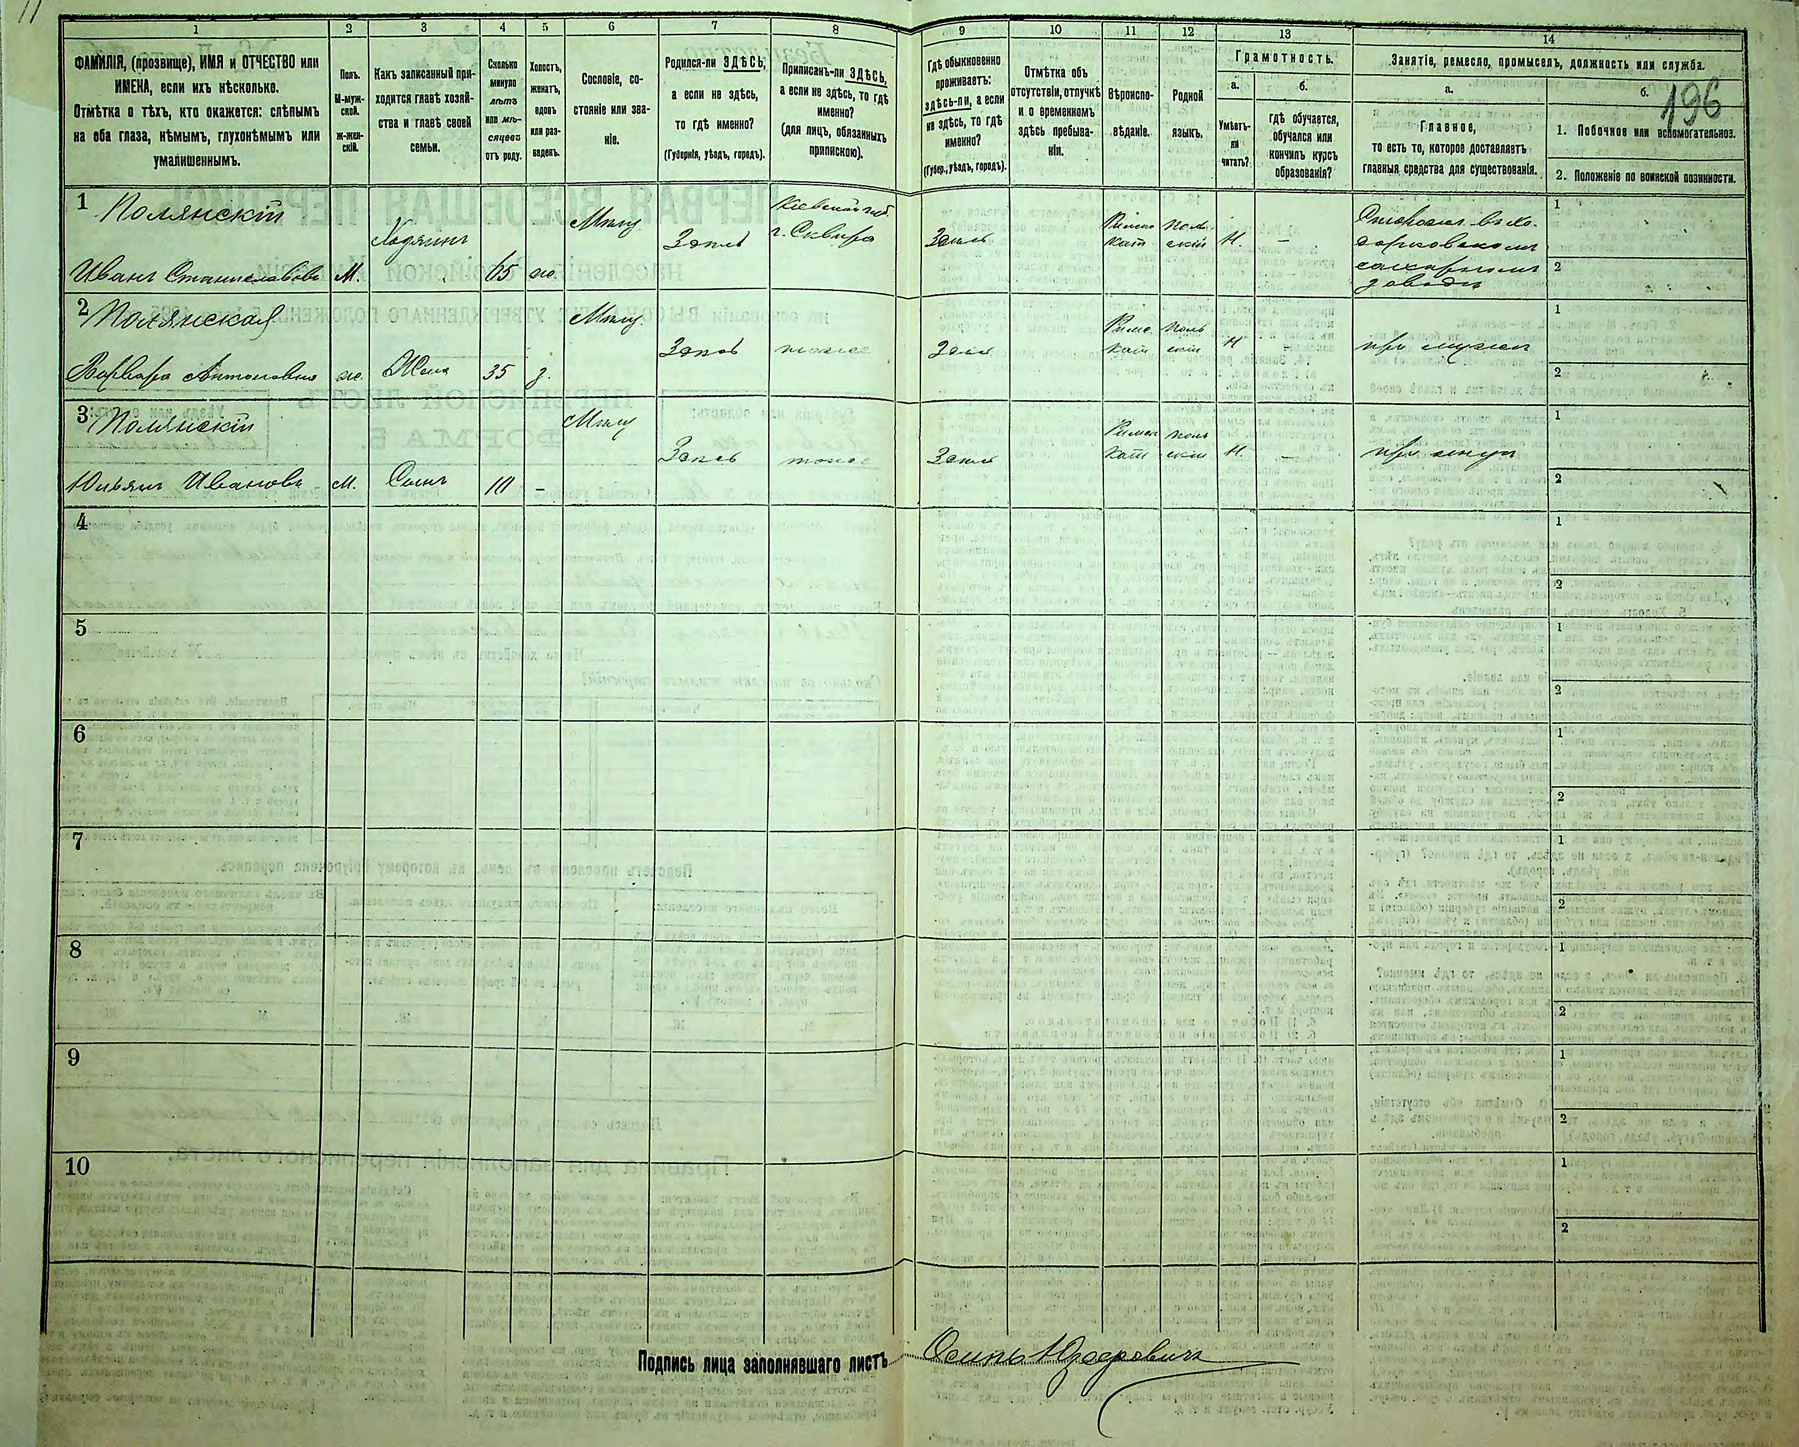 11
196
1 2 3 4 5 6 7 8 9 10 11 12 13 14
ФАМИЛІЯ, (прозвище), ИМЯ и ОТЧЕСТВО или
ИМЕНА, если ихъ нѣсколько.
Отмѣтка о тѣхъ, кто окажется: слѣпымъ
на оба глаза, нѣмымъ, глухонѣмымъ или
умалишеннымъ.
Полъ.
М-муж-
ской.
ж-жен-
скій.
Какъ записанный при-
ходится главѣ хозяй-
ства и главѣ своей
семьи.
Сколько
минуло
лѣтъ
или мѣ-
сяцевъ
отъ роду.
Холостъ,
женатъ,
вдовъ
или раз-
веденъ.
Сословіе, со-
стояніе или зва-
ніе.
Родился-ли ЗДѢСЬ,
а если не здѣсь,
то гдѣ именно?
(Губернія, уѣздъ, городъ).
Приписанъ-ли ЗДѢСЬ,
а если не здѣсь, то гдѣ
именно?
(для лицъ, обязанныхъ
припискою).
Гдѣ обыкновенно
проживаетъ:
здѣсь-ли, а если
не здѣсь, то гдѣ
именно?
(Губер., уѣздъ, городъ).
Отмѣтка объ
отсутствіи, отлучкѣ
и о временномъ
здѣсь пребыва-
ніи.
Вѣроиспо-
вѣданіе.
Родной
языкъ.
Грамотность.
а.
Умѣетъ-
ли
читать?
б.
гдѣ обучается,
обучался или
кончилъ курсъ
образованія?
Занятіе, ремесло, промыселъ, должность или служба.
а.
Главное,
то есть то, которое доставляетъ
главныя средства для существованія.
б.
1. Побочное или вспомогательное.
2. Положеніе по воинской повинности.
1 Полянскій
Иванъ Станиславовъ М. Хозяинъ 65 ж. Мѣщ. Здѣсь
Кіевской губ.
г. Сквира
Здѣсь
Римско
кат
поль
скій
Н. –
сахарномъ
заводѣ
1
2
2 Полянская
Варвара Антоновна ж. Жена 35 з. Мѣщ. Здѣсь тоже Здѣсь
Римс.
кат
поль
скій
Н – при мужѣ
1
2
3 Полянскій
Юльянъ Ивановъ М. Сынъ 10 – Мѣщ Здѣсь тоже Здѣсь
Римск
кат
поль
скій
Н –
1
2
4
1
2
5
1
2
6
1
2
7
1
2
8
1
2
9
1
2
10
1
2
Подпись лица заполнявшаго листъ Осипъ